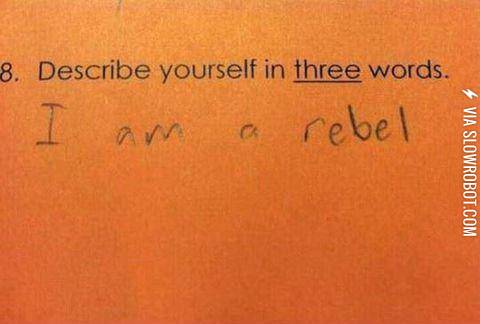 8. Describe yourself in three words.
I am a rebel
VIA SLOWROBOT.COM